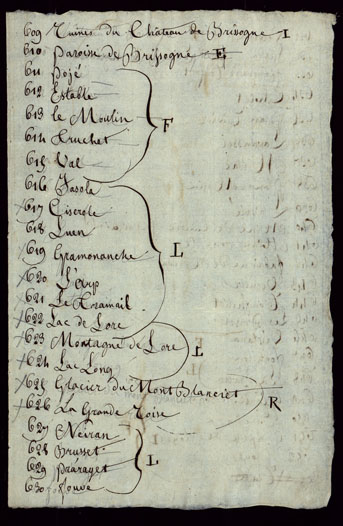 609 Ruines du Château de Brissogne I
610 Paroise de Brissogne E
611 Pojé
612 Establé
613 le Moulin F
614 Truchet
615 Val
616 Fasola
617 Ciserole
618 Luen
619 Gramonanche L
620 L'Arp
621 Le Kramail
622 Lac de Lore
623 Montagne de Lore L
624 Lac Long
625 Glacier du Mont Blanciet R
626 La Grande Roise
627 Neiran
628 Grusset L
629 Paaraget
630 Nouva